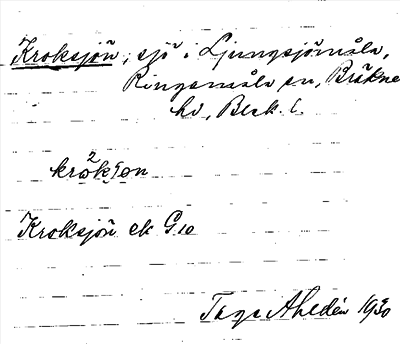 Kroksjön, sjö i Ljungsjömåla,
Ringamåla sn, Bräkne
hd, Blek. l.
krok²ʂön
Kroksjön ek G10
Tage Ahldén 1930